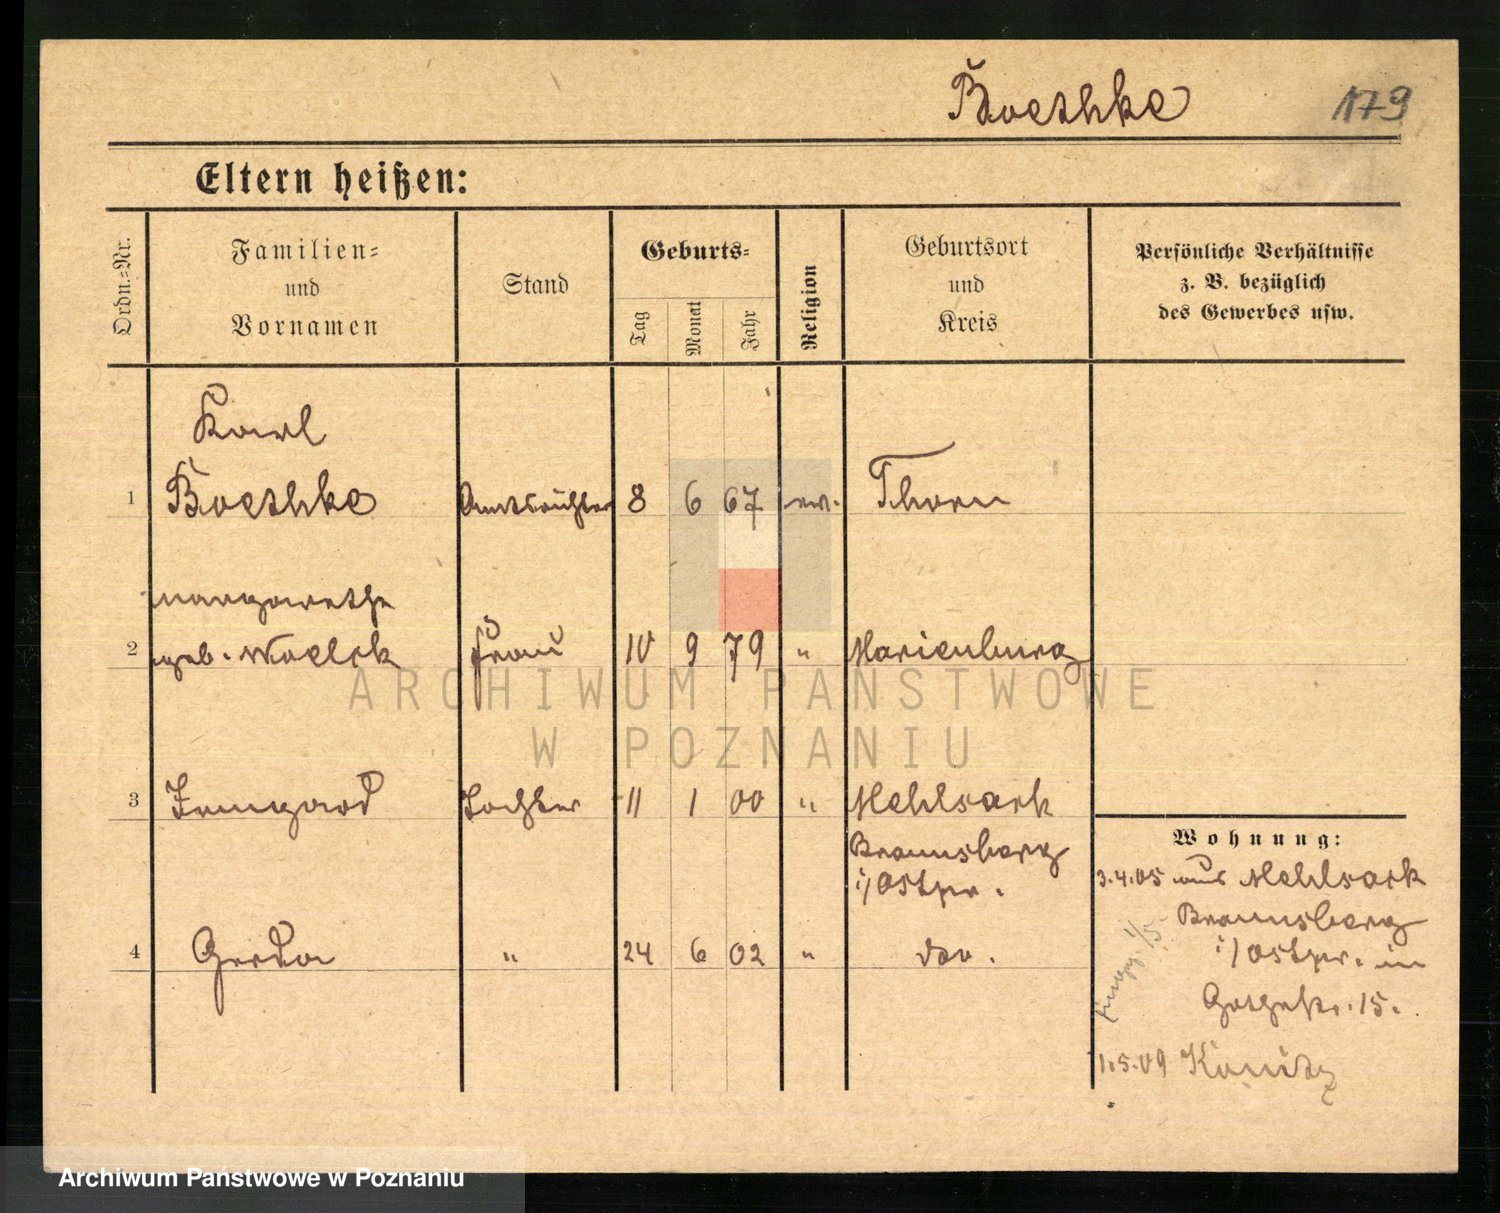 Boethke 179
Eltern heißen:
Ordn.-Nr.
Familien-
und
Vornamen
Stand
Geburts-
Tag
Monat
Jahr
Religion
Geburtsort
und
Kreis
Persönliche Verhältnisse
z. B. bezüglich
des Gewerbes usw.
Karl
1 Boethke Amtsrichter 8 6 67 ev. Thorn
Margarethe
2 geb. Woelck Frau 10 9 79 " Marienburg
3 Irmgard Tochter 11 1 00 " Mehlsack
Braunsberg
i/Ostpr.
4 Gerda " 24 6 02 " do.
Wohnung:
3.4.05 aus Mehlsack
Braunsberg
i/Ostpr. in
Goethestr. 15.
1.5.09 Konitz
ARCHIWUM PAŃSTWOWE
W POZNANIU
Archiwum Państwowe w Poznaniu